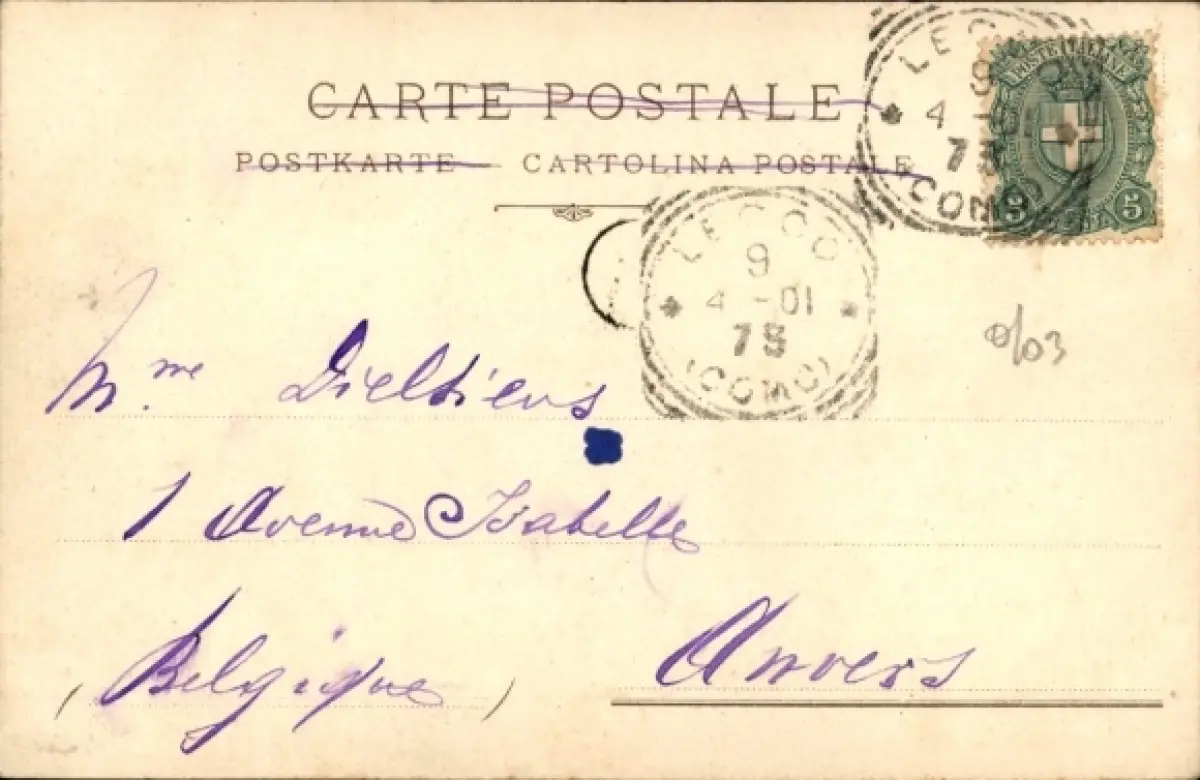 CARTE POSTALE
POSTKARTE CARTOLINA POSTALE
POSTE ITALIANE
5 5
LECCO
9
4
(COMO)
LECCO
9
4 - 01
(COMO)
0/03
Mme Dieltiens
1 Avenue Isabelle
(Belgique) Anvers